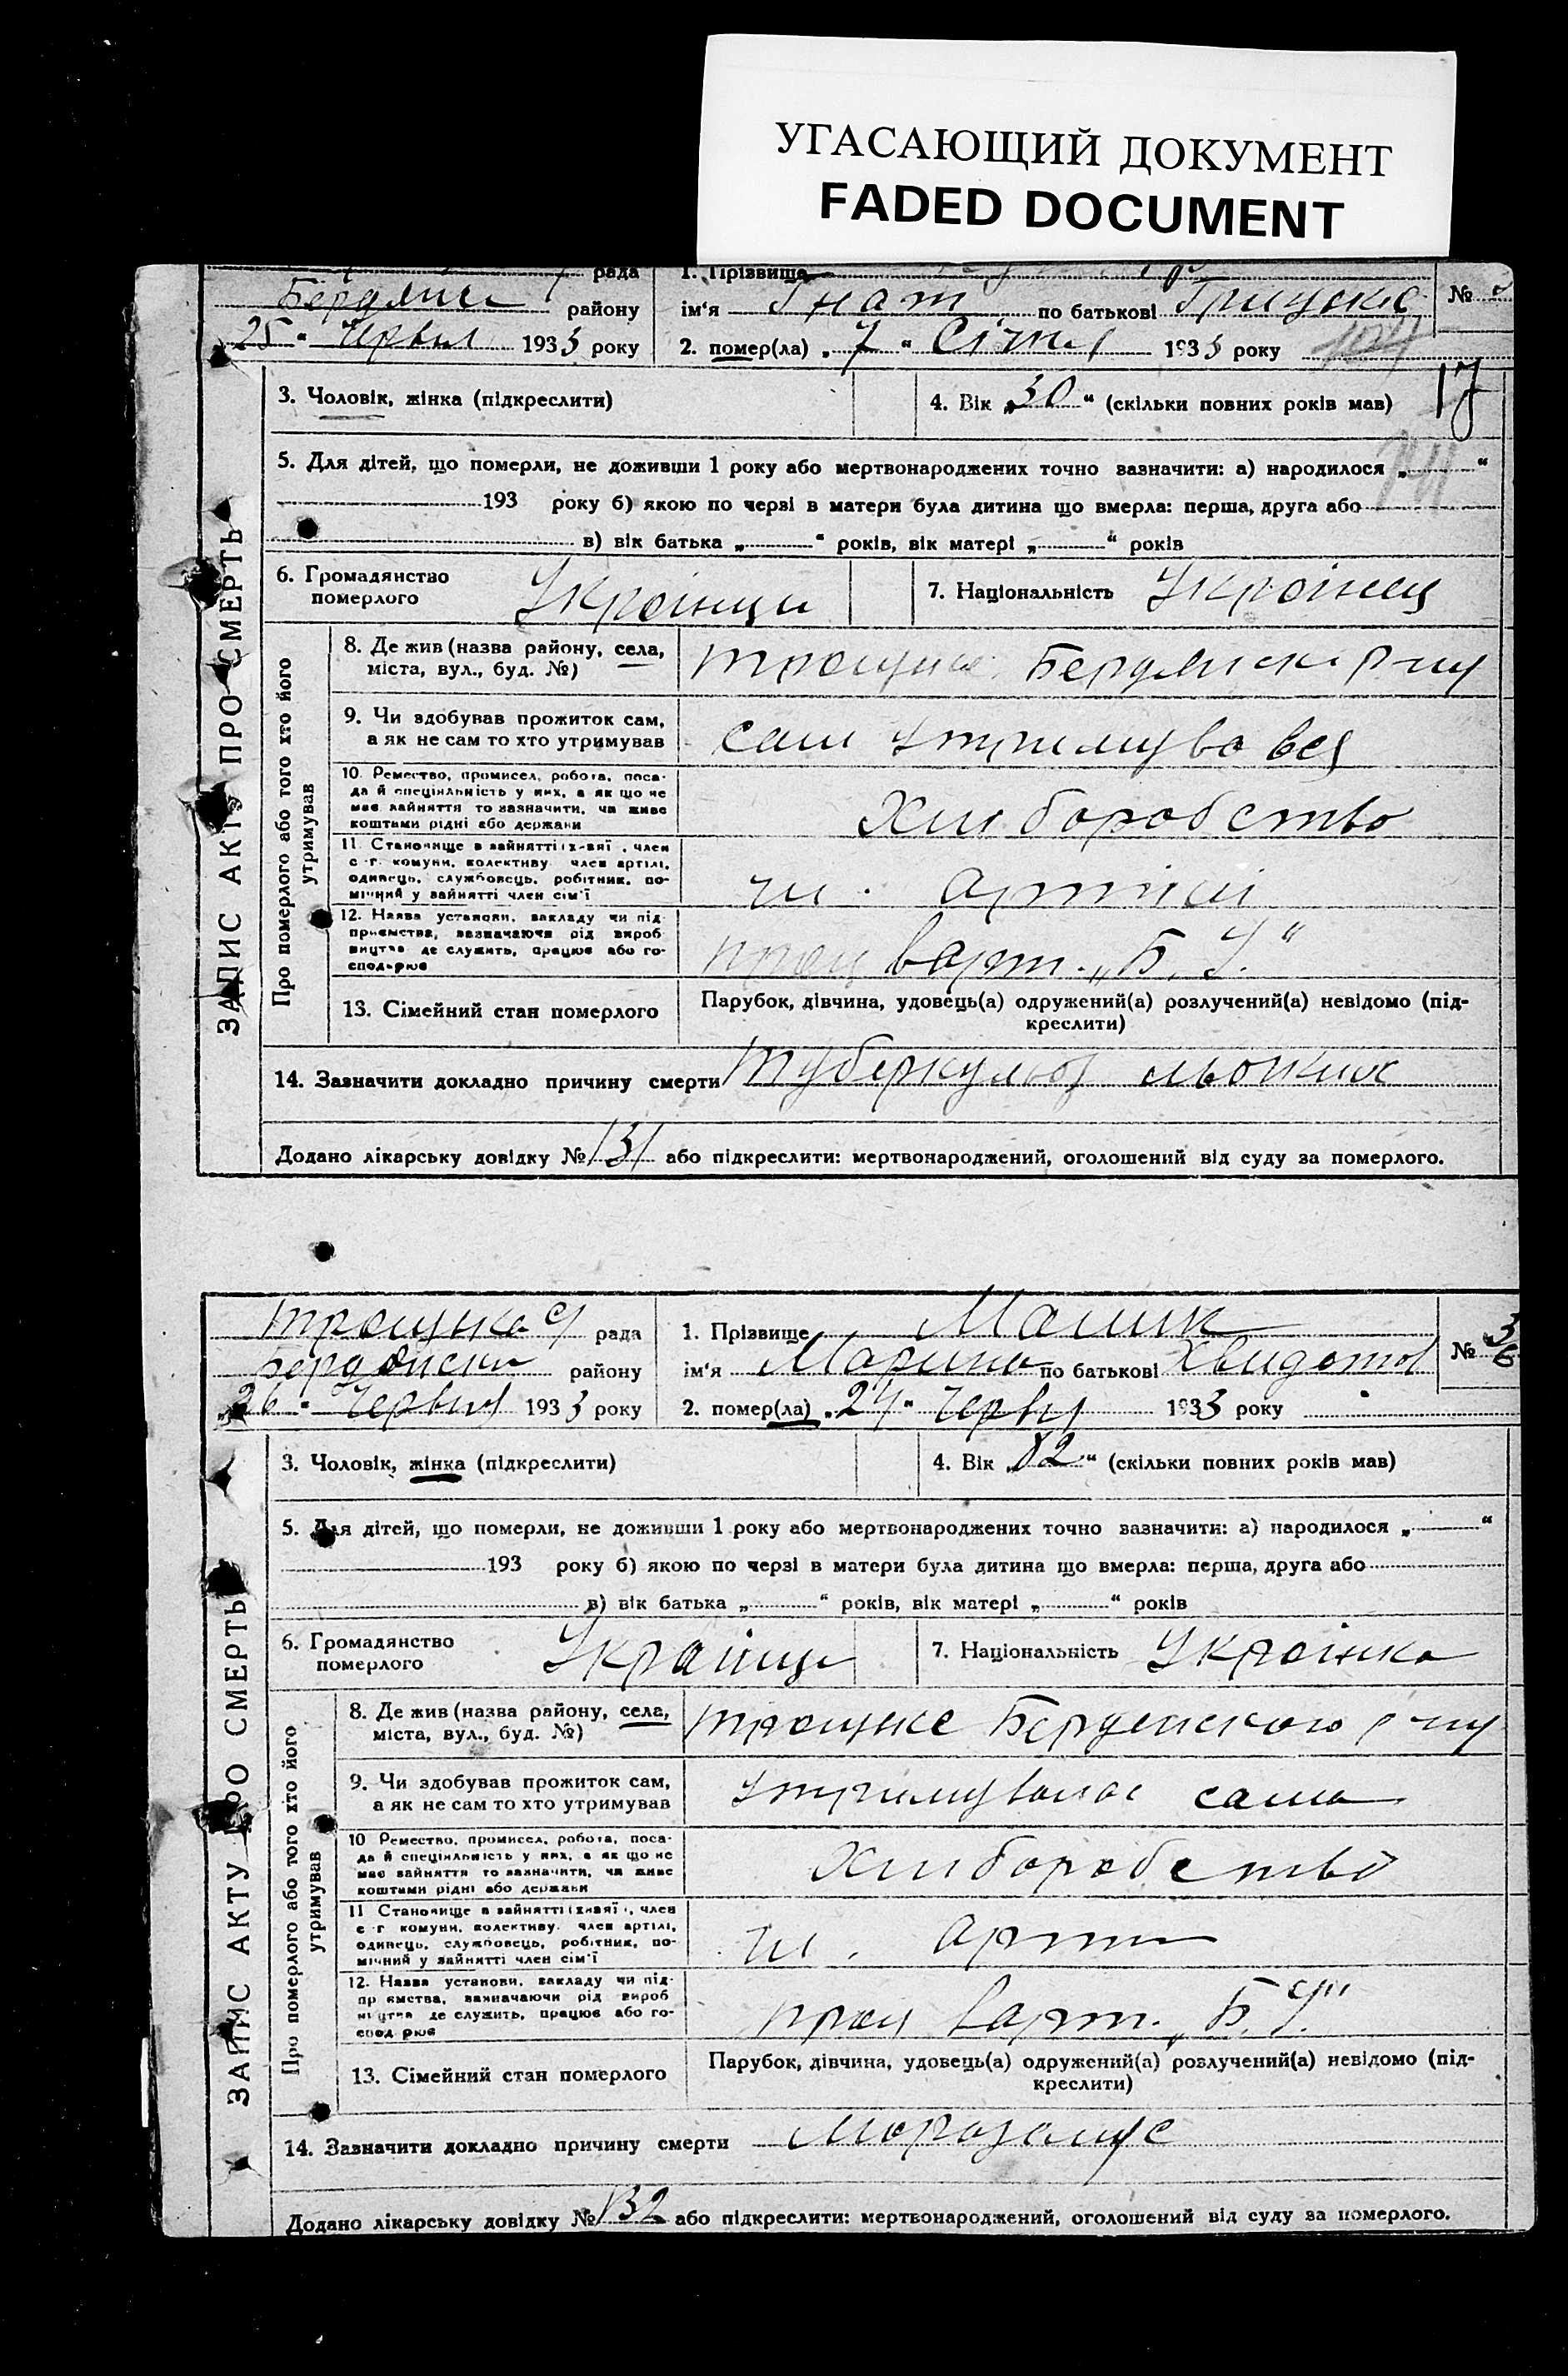 УГАСАЮЩИЙ ДОКУМЕНТ
FADED DOCUMENT
рада
1. Прізвище
району
ім'я Гнат по батькові
№
25 " Червня 1933 року
2. помер(ла) „ 7 " Січня 1933 року
17
3. Чоловік, жінка (підкреслити)
4. Вік „30" (скільки повних років мав)
5. Для дітей, що померли, не доживши 1 року або мертвонароджених точно зазначити: а) народилося „ "
193 року б) якою по черзі в матери була дитина що вмерла: перша, друга або
в) вік батька „ " років, вік матері „ " років
6. Громадянство
померлого
Українци
7. Національність Українец
ЗАПИС АКТУ ПРО СМЕРТЬ
Про померлого або того хто його
утримував
8. Де жив (назва району, села,
міста, вул., буд. №)
9. Чи здобував прожиток сам,
а як не сам то хто утримував
сам утримувався
10. Ремество, промисел, робота, поса-
да й спеціяльність у них, а як що не
має зайняття то зазначити, чи живе
коштами рідні або держави
Хліборобство
11. Становище в зайнятті , член
с.-г. комуни, колективу член артілі,
одинець, службовець, робітник, по-
мічний у зайнятті член сім'ї
чл. артілі
12. Назва установи, закладу чи під-
приємства, зазначаючи рід вироб-
ництва де служить, працює або го-
сподарює
прац варт. „Б. У."
13. Сімейний стан померлого
Парубок, дівчина, удовець(а) одружений(а) розлучений(а) невідомо (під-
креслити)
14. Зазначити докладно причину смерти Туберкульоз
Додано лікарську довідку № 131 або підкреслити: мертвонароджений, оголошений від суду за померлого.
рада
1. Прізвище Малик
району
ім'я Марина по батькові
№ 36
26 " Червня 1933 року
2. помер(ла) „ 24 " Червня 1933 року
3. Чоловік, жінка (підкреслити)
4. Вік „82" (скільки повних років мав)
5. Для дітей, що померли, не доживши 1 року або мертвонароджених точно зазначити: а) народилося „ "
193 року б) якою по черзі в матери була дитина що вмерла: перша, друга або
в) вік батька „ " років, вік матері „ " років
6. Громадянство
померлого
7. Національність Українка
ЗАПИС АКТУ ПРО СМЕРТЬ
Про померлого або того хто його
утримував
8. Де жив (назва району, села,
міста, вул., буд. №)
9. Чи здобував прожиток сам,
а як не сам то хто утримував
утримувалас сама
10 Ремество, промисел, робота, поса-
да й спеціяльність у них, а як що не
має зайняття то зазначити, чи живе
коштами рідні або держави
Хліборобство
11 Становище в зайнятті , член
с-г комуни, колективу член артілі,
одинець, службовець, робітник, по-
мічний у зайнятті член сім'ї
чл. арт
12. Назва установи, закладу чи під-
приємства, зазначаючи рід вироб-
ництва де служить, працює або го-
сподарює
прац варт. „Б. У."
13. Сімейний стан померлого
Парубок, дівчина, удовець(а) одружений(а) розлучений(а) невідомо (під-
креслити)
14. Зазначити докладно причину смерти
Додано лікарську довідку № 132 або підкреслити: мертвонароджений, оголошений від суду за померлого.